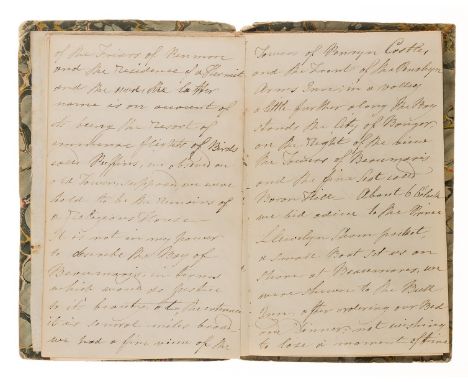 of the Friars of Penmon
and the residence of a Hermit
and the
name is on account of
its being the resort of
immense flights of Birds
called Puffins, we observed an
old Tower supposed we were
told to be the remains of
a Religious House
It is not in my power
to describe the Bay of
Beaumaris in terms
which would do justice
to its beauty, at the entrance
it is several miles broad
we had a fine view of the
Towers of Penryn Castle,
and the Front of the Penrhyn
Arms Inn; in a valley
a little further along the Bay
stands the City of Bangor,
on the right of the
the Towers of Beaumaris
and the fine
Baron Hill. About 6 o'clock
we bid adieu to the Prince
Llewelyn Steam packet,
a small Boat set us on
shore at Beaumaris, we
were shewn to the Bull
Inn, after ordering our Bed
and Dinner, not wishing
to lose a moment of time